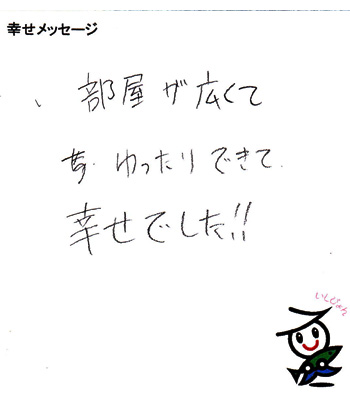 幸せメッセージ
部屋が広くて
ゆったりできて
幸せでした!!